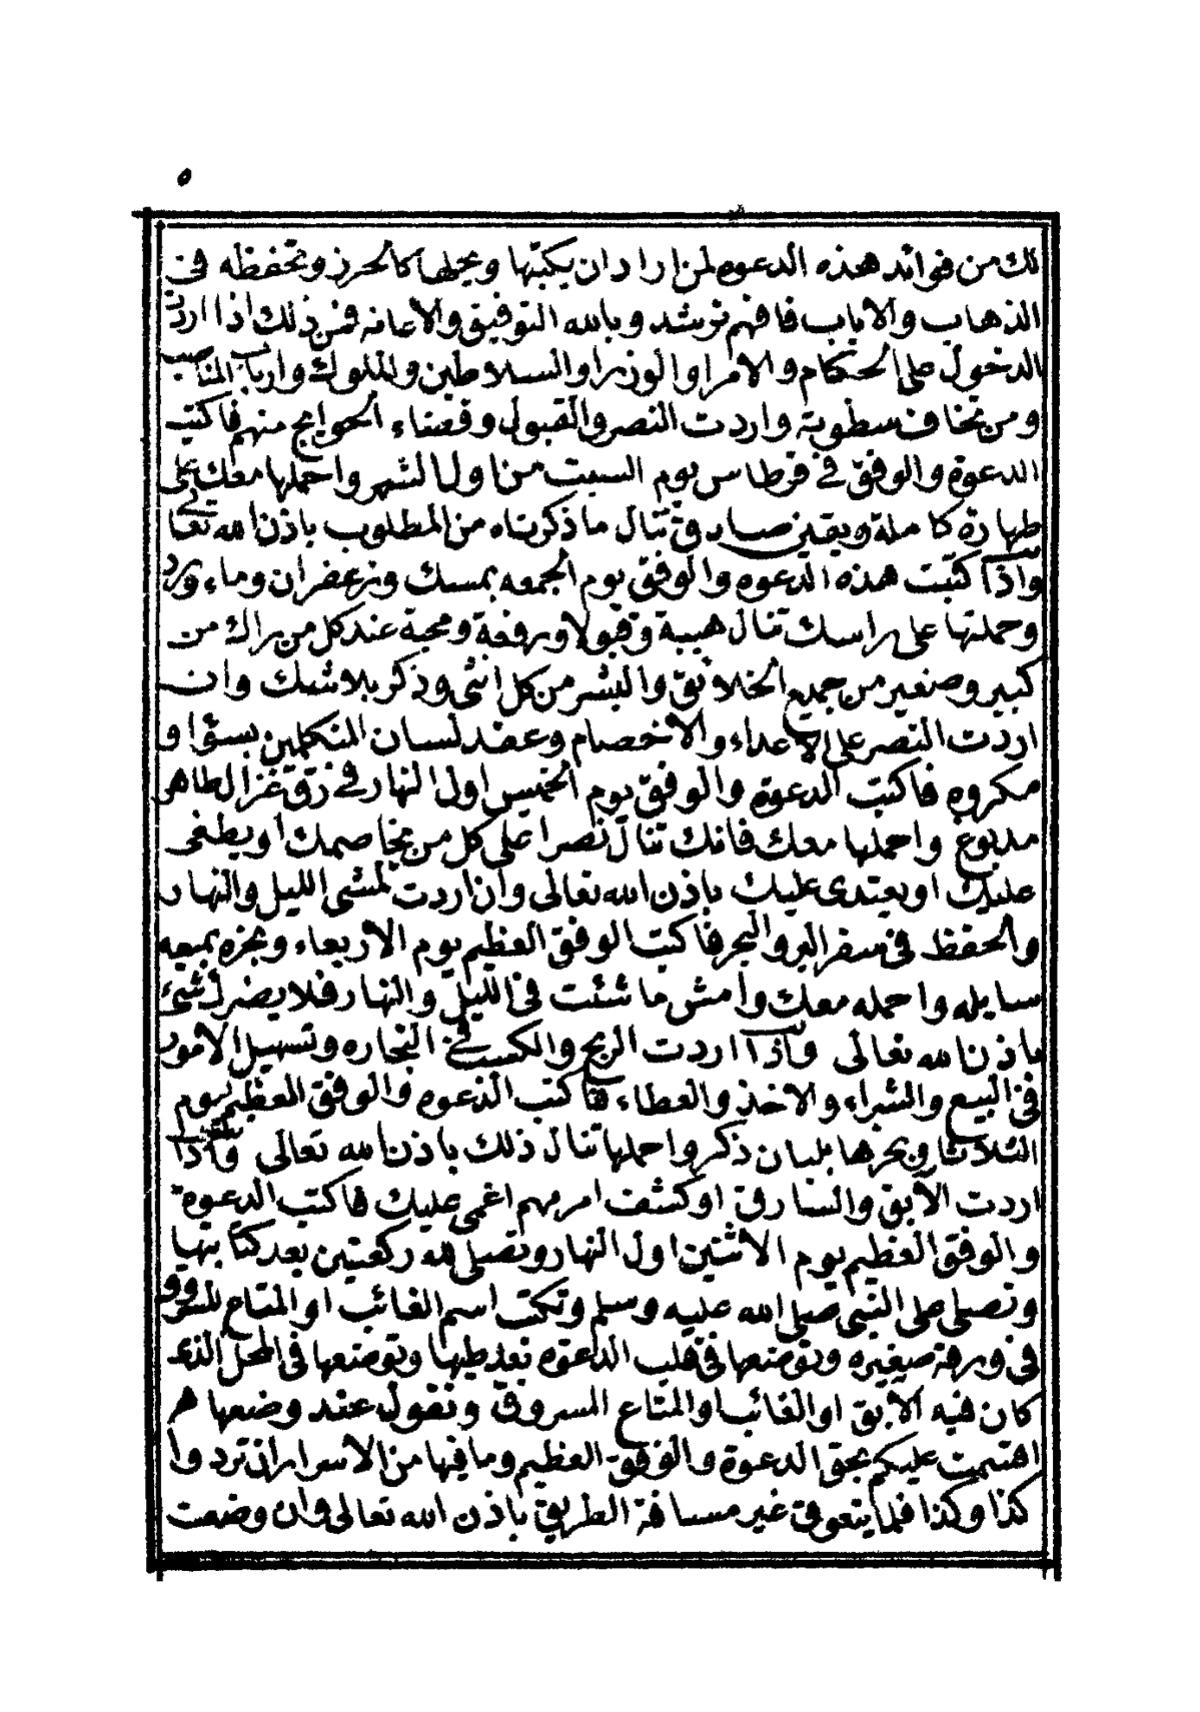 ٥
لك من فوائد هذه الدعوه لمن اراد ان يكتبها ويحملها كالحرز وتحفظه فى
الذهاب والاياب فافهم ترشد وبالله التوفيق والاعانه فمن ذلك اذا اردت
الدخول على الحكام والامرا والوزرا والسلاطين والملوك وارباب المناصب
ومن تخاف سطوته واردت النصر والقبول وقضاء الحوايج منهم فاكتب
الدعوة والوفق فى قرطاس يوم السبت من اول الشهر واحملها معك على
طهارة كاملة ويقين صادق تنال ما ذكرناه من المطلوب باذن الله تعالى
واذا كتبت هذه الدعوه والوفق يوم الجمعه بمسك وزعفران وماء ورد
وحملتها على راسك تنال هيبة وقبولا ورفعة ومحبة عند كل من راك من
كبير وصغير من جميع الخلائق والبشر من كل انثى وذكر بلا شك وان
اردت النصر على الاعداء والاخصام وعقد لسان المتكلمين بسؤا و
مكروه فاكتب الدعوة والوفق يوم الخميس اول النهار فى رق غزال طاهر
مدبوغ واحملها معك فانك تنال نصرا على كل من يخاصمك او يطغى
عليك او يعتدى عليك باذن الله تعالى وان اردت تمشى الليل والنهار
والحفظ فى سفر البر والبحر فاكتب الوفق العظيم يوم الاربعاء وبخره بميعه
سايله واحمله معك وامش ما شئت فى الليل والنهار فلا يضرك شئ
باذن الله تعالى واذا اردت الربح والكسب فى التجاره وتسهيل الامور
فى البيع والشراء والاخذ والعطاء فاكتب الدعوه والوفق العظيم يوم
الثلاثا وبخرها بلبان ذكر واحملها تنال ذلك باذن الله تعالى واذا
اردت الآبق والسارق او كشف امر مهم اغمى عليك فاكتب الدعوه
والوفق العظيم يوم الاثنين اول النهار وتصلى لله ركعتين بعد كتابتها
وتصلى على النبى صلى الله عليه وسلم وتكتب اسم الغائب او المتاع المسروق
فى ورقة صغيره وتوضعها فى قلب الدعوه بعد طيها وتوضعها فى المحل الذى
كان فيه الابق او الغائب او المتاع المسروق وتقول عند وضعها
اقسمت عليكم بحق الدعوة والوفق العظيم وما فيها من الاسرار ان تردوا
كذا وكذا فلم يتعوق غير مسافة الطريق باذن الله تعالى وان وضعت